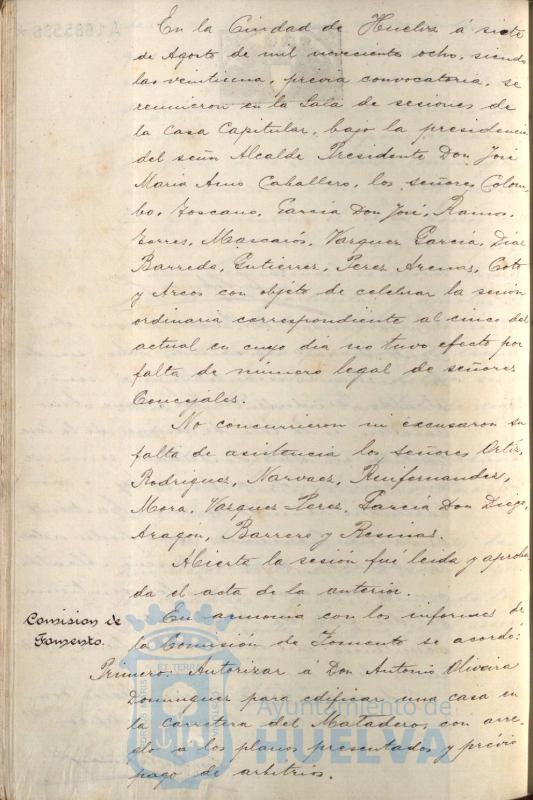 En la Ciudad de Huelva á siete
de Agosto de mil novecientos ocho, siendo
las veintiuna, previa convocatoria, se
reunieron en la Sala de sesiones de
la Casa Capitular, bajo la presidencia
del señor Alcalde Presidente Don José
Maria Amo Caballero, los señores Colom-
bo, Toscano, Garcia Don José, Ramos,
Torres, Mascarós, Vazquez Garcia, Diaz
Barreda, Gutierrez, Perez Arenas, Coto
y Arcos con objeto de celebrar la sesión
ordinaria correspondiente al cinco del
actual en cuyo dia no tuvo efecto por
falta de número legal de señores
Concejales.
No concurrieron ni excusaron su
falta de asistencia los señores Ortiz,
Rodriguez, Narvaez, Ruifernandez,
Mora, Vazquez Perez, Garcia Don Diego,
Aragon, Barrero y Resinas.
Abierta la sesión fué leida y aproba-
da el acta de la anterior.
Comision de
Fomento.
En armonia con los informes de
la Comisión de Fomento se acordó:
Primero: Autorizar á Don Antonio Oliveira
Dominguez para edificar una casa en
la Carretera del Matadero, con arre-
glo a los planos presentados y prévio
pago de arbitrios.
Ayuntamiento de
HUELVA